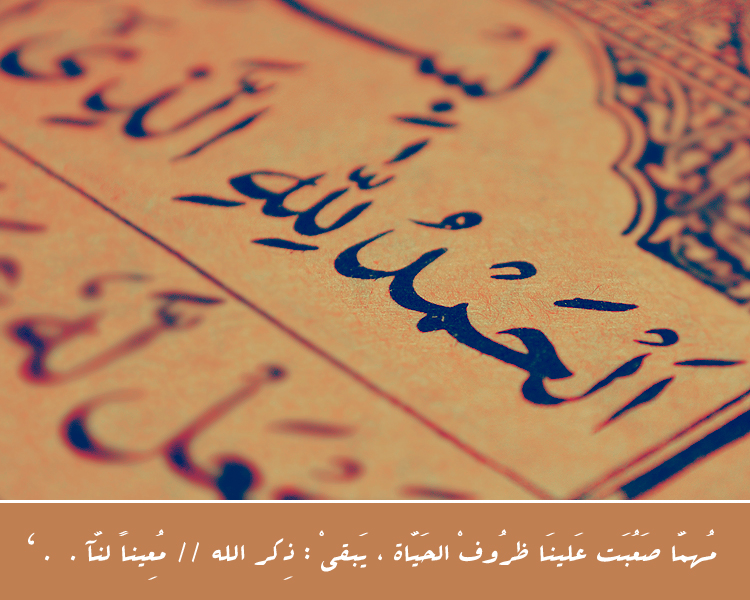 بِسْـ
اَلْحَمْدُ لِلّٰهِ الَّذِي
جَعَلَ
مُهمّا صَعُبَت عَلينَا ظرُوفْ الحَيّاة ، يَبقىْ : ذِكر الله // مُعِيناً لنّآ . . ‘